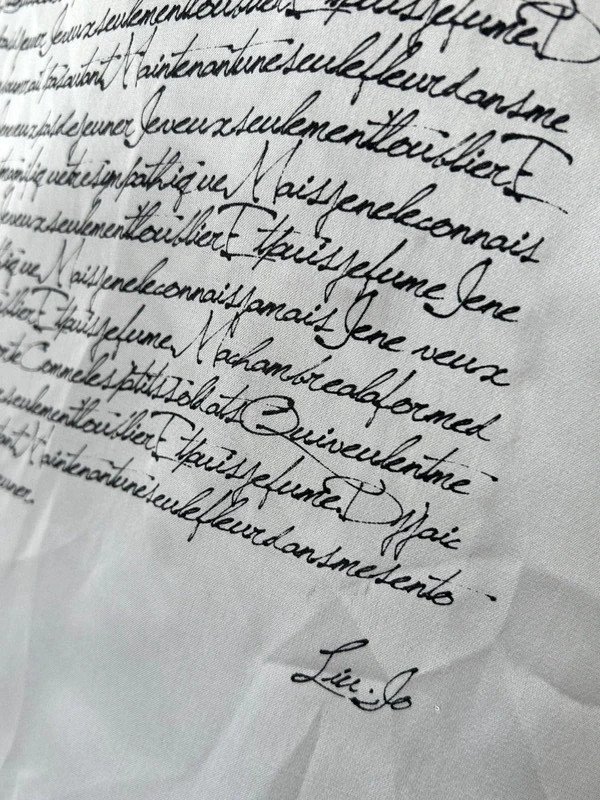 JeveuxseulementloublierEtpuisjefumeD
pasautantMaintenantuneseulefleurdansme
neveuxpasdejeunerJeveuxseulementloublierE
MaisjeneleconnaisS
eveuxseulementloublierEtpuisjefumeJene
tiqueMaisjeneleconnaisjamaisJene veux
oublierEtpuisjefumeMachambrealaformed
orteCommelesptitssoldatsQuiveulentme
seulementloublierEtpuisjefumeDjjaic
tantMaintenantuneseulefleurdansmesento
euner
Liu·Jo